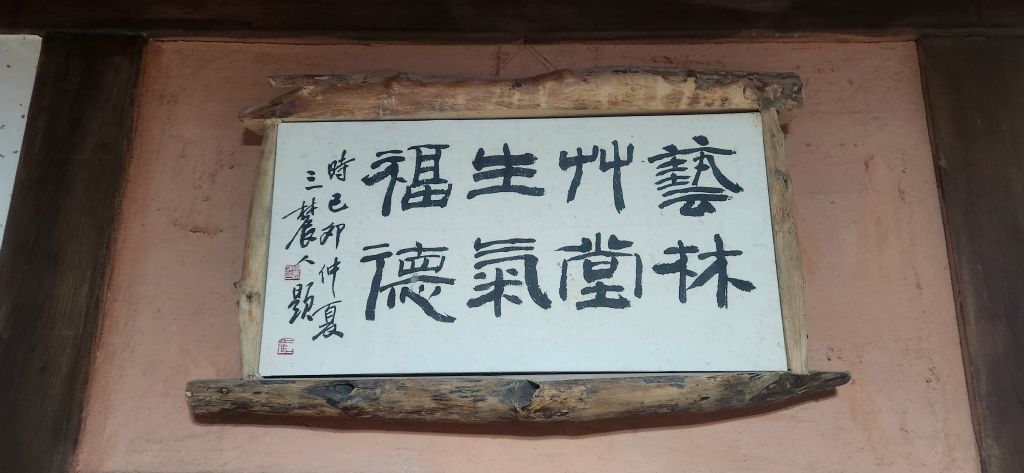 藝林
艸堂
生氣
福德
時己卯仲夏
三農人題